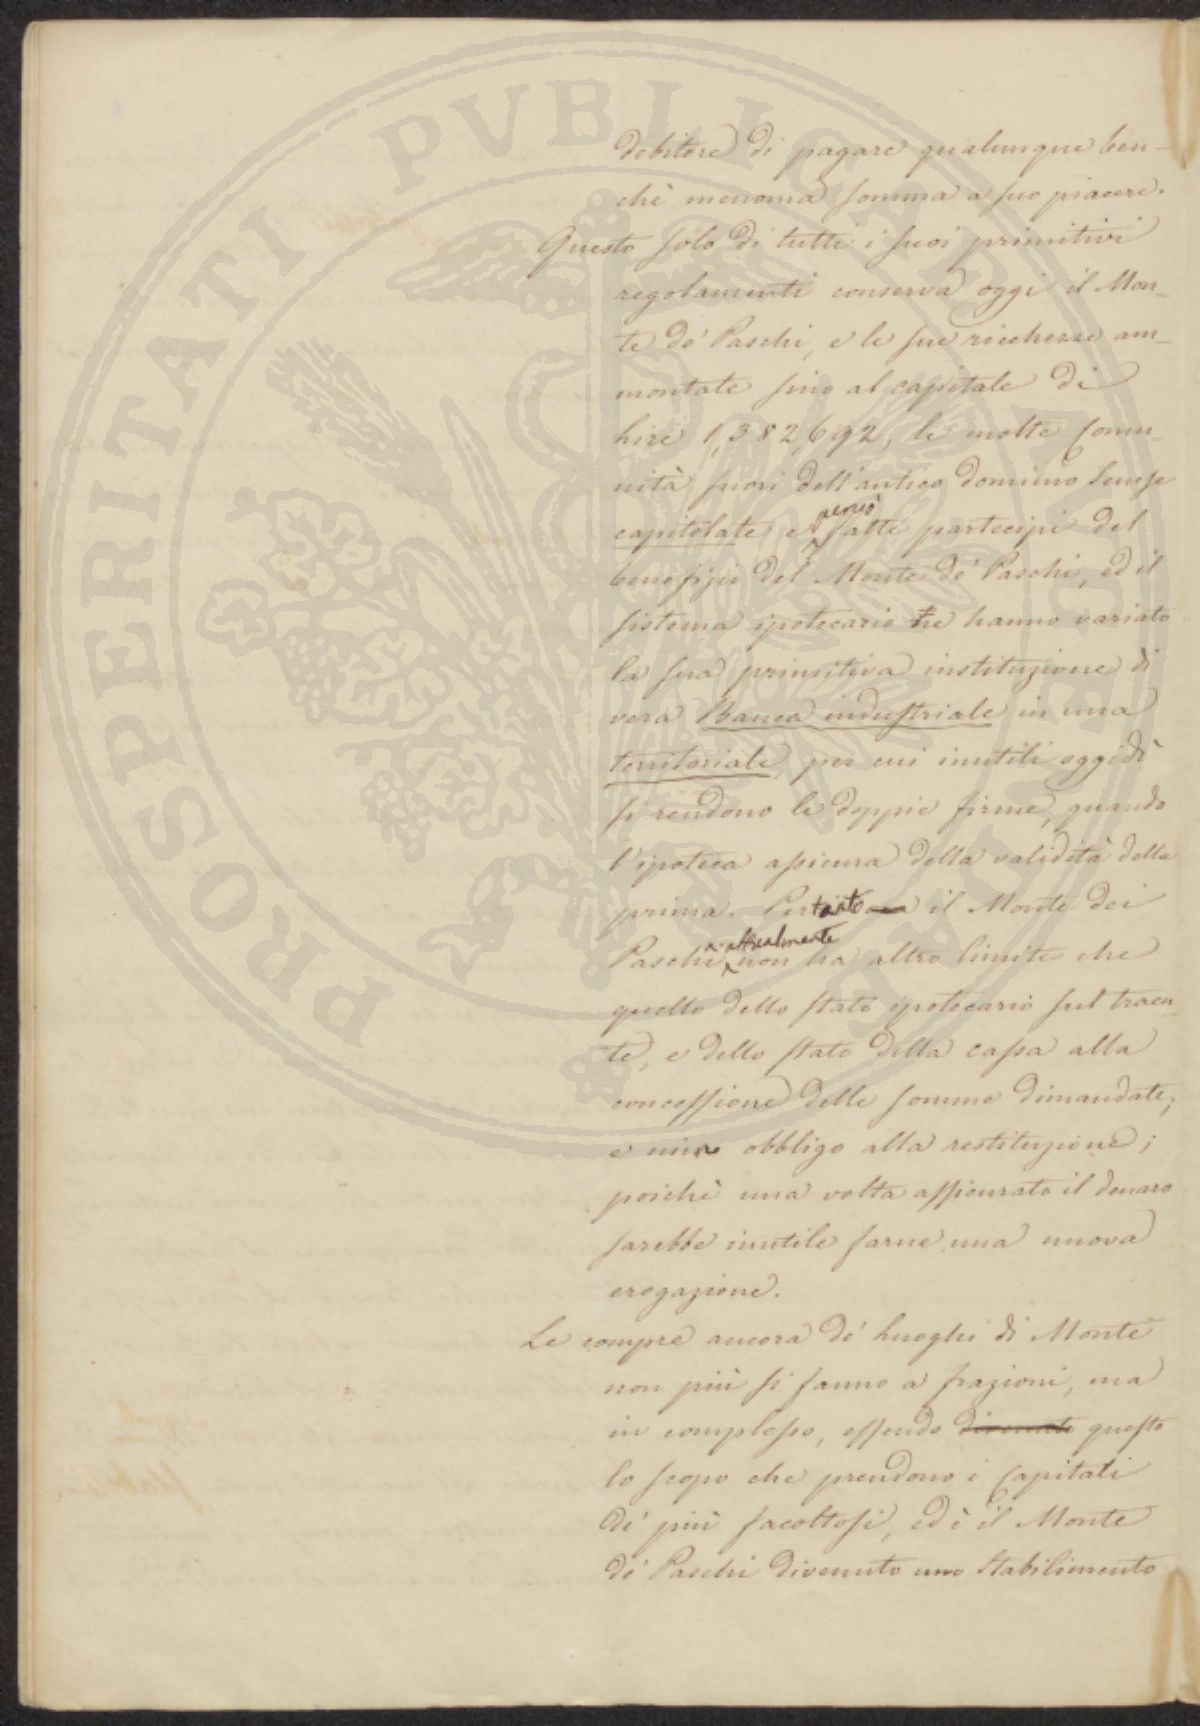 debitore di pagare qualunque ben-
chè menoma somma a suo piacere.
Questo solo di tutti i suoi primitivi
regolamenti conserva oggi il Mon-
te de' Paschi, e le sue ricchezze am-
montate sino al capitale di
Lire 1,382,692, le molte Comu-
nità fuori dell'antico dominio Senese
capitolate e perciò fatte partecipi del
benefizio del Monte de' Paschi, ed il
sistema ipotecario ne hanno variato
la sua primitiva instituzione di
vera Banca industriale in una
territoriale, per cui inutili oggidì
si rendono le doppie firme, quando
l'ipoteca assicura della validità della
prima. Pertanto il Monte dei
Paschi attualmente non ha altro limite che
quello dello stato ipotecario sul traen-
te, e dello stato della cassa alla
concessione delle somme dimandate;
e niuno obbligo alla restituzione;
poichè una volta assicurato il denaro
sarebbe inutile farne una nuova
erogazione.
Le compre ancora de' Luoghi di Monte
non più si fanno a frazioni, ma
in complesso, essendo divenuto questo
lo scopo che prendono i Capitali
de' più facoltosi, ed è il Monte
de' Paschi divenuto uno Stabilimento
PVBLICAE
PROSPERITATI